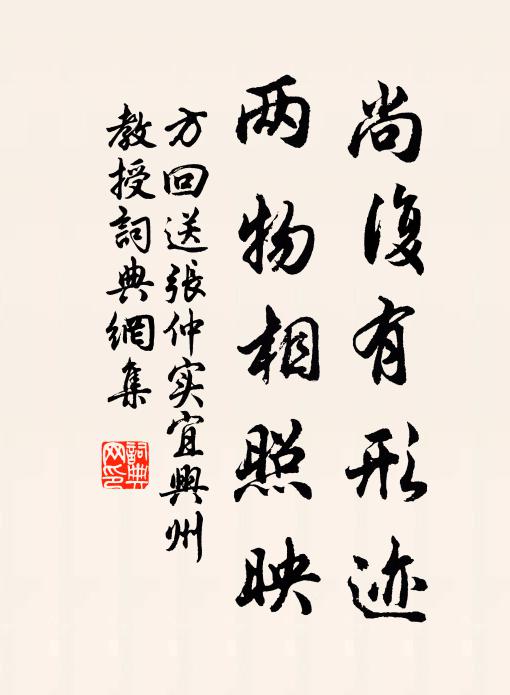 尚復有形迹
两物相照映
方回送張仲实宜興州
教授詞典網集
詞典
网印